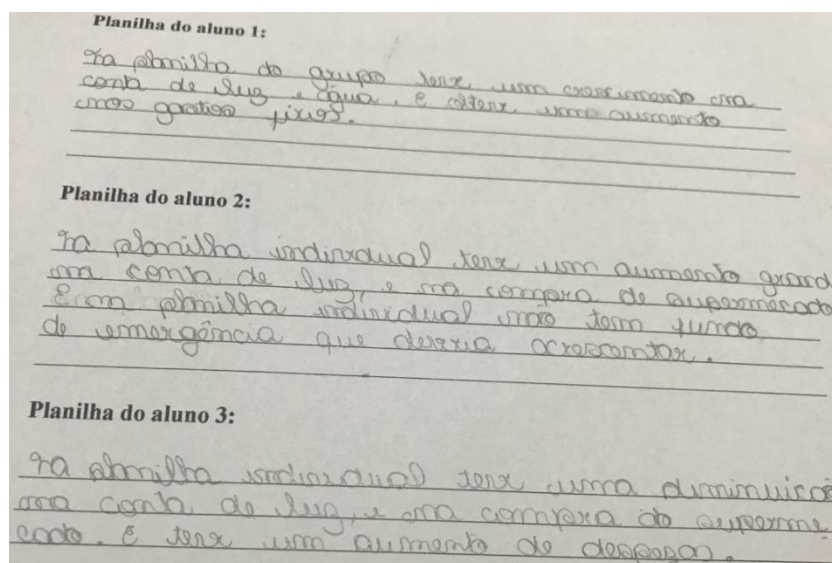 Planilha do aluno 1:
Na planilha do grupo teve um crescimento na
conta de luz e água. E obteve um aumento
nos gastos fixos.
Planilha do aluno 2:
Na planilha individual teve um aumento grand
na conta de luz, e na compra de supermecado
E na planilha individual não tem fundo
de emergência que deveria acrescentar.
Planilha do aluno 3:
Na planilha individual teve uma diminuicã
na conta de luz, e na compra do superme-
cado. E teve um aumento de despesas.